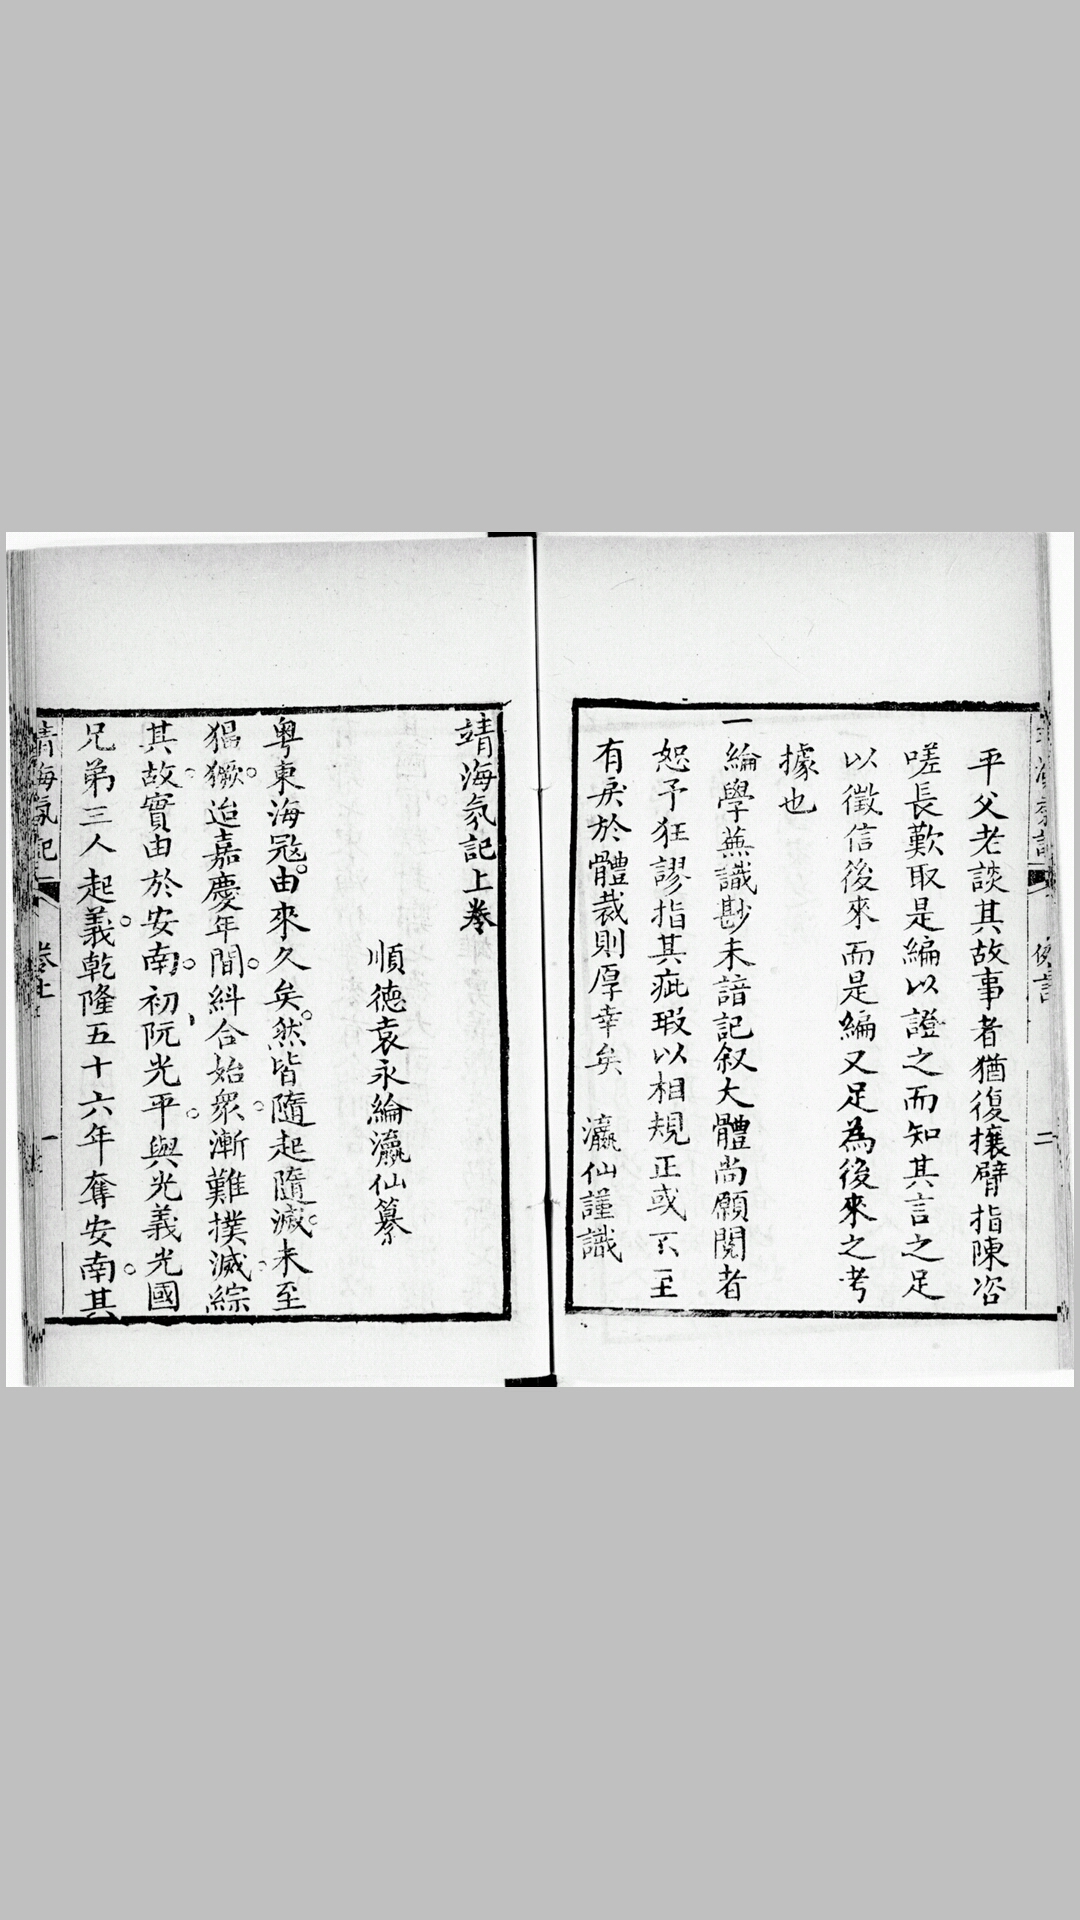 平父老談其故事者猶復攘臂指陳咨
嗟長歎取是編以證之而知其言之足
以徵信後來而是編又足為後來之考
據也
一綸學蕪識尠未諳記叙大體尚願閱者
恕予狂謬指其疵瑕以相規正或不至
有戾於體裁則厚幸矣　瀛仙謹識
例言　二
靖海氛記上卷
順德袁永綸瀛仙纂
粵東海寇。由來久矣。然皆隨起隨滅。未至
猖獗。迨嘉慶年間。糾合始衆。漸難撲滅。綜
其故。實由於安南。初阮光平。與光義光國
兄弟三人起義。乾隆五十六年奪安南。其
靖海氛記　卷上　一